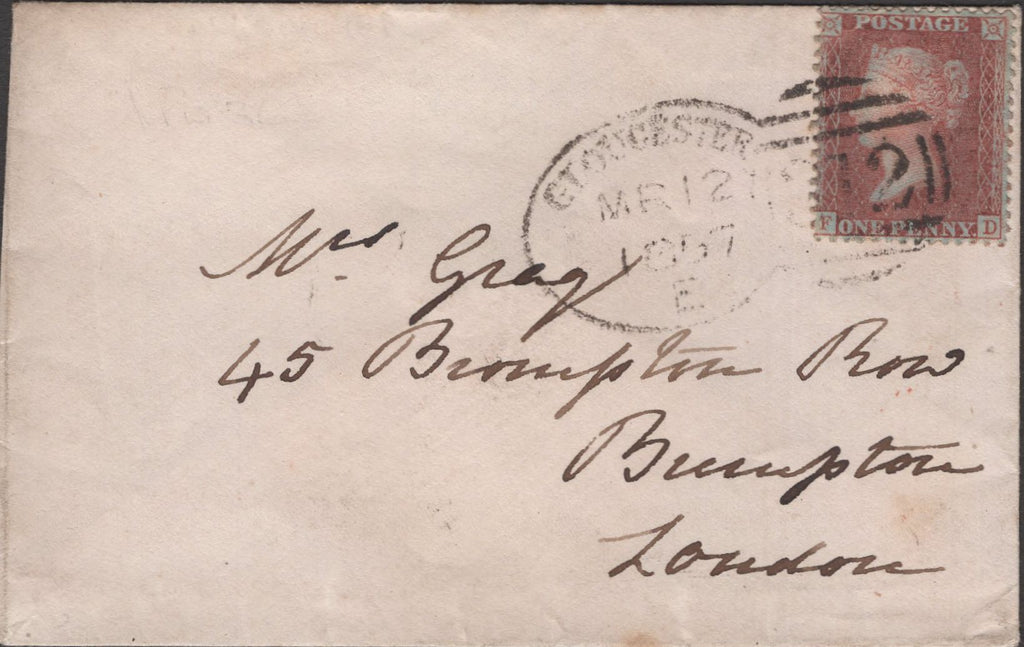 POSTAGE
F ONE PENNY D
GLOUCESTER
MR 12
1857
E
Mrs. Gray
45 Brompton Row
Brompton
London